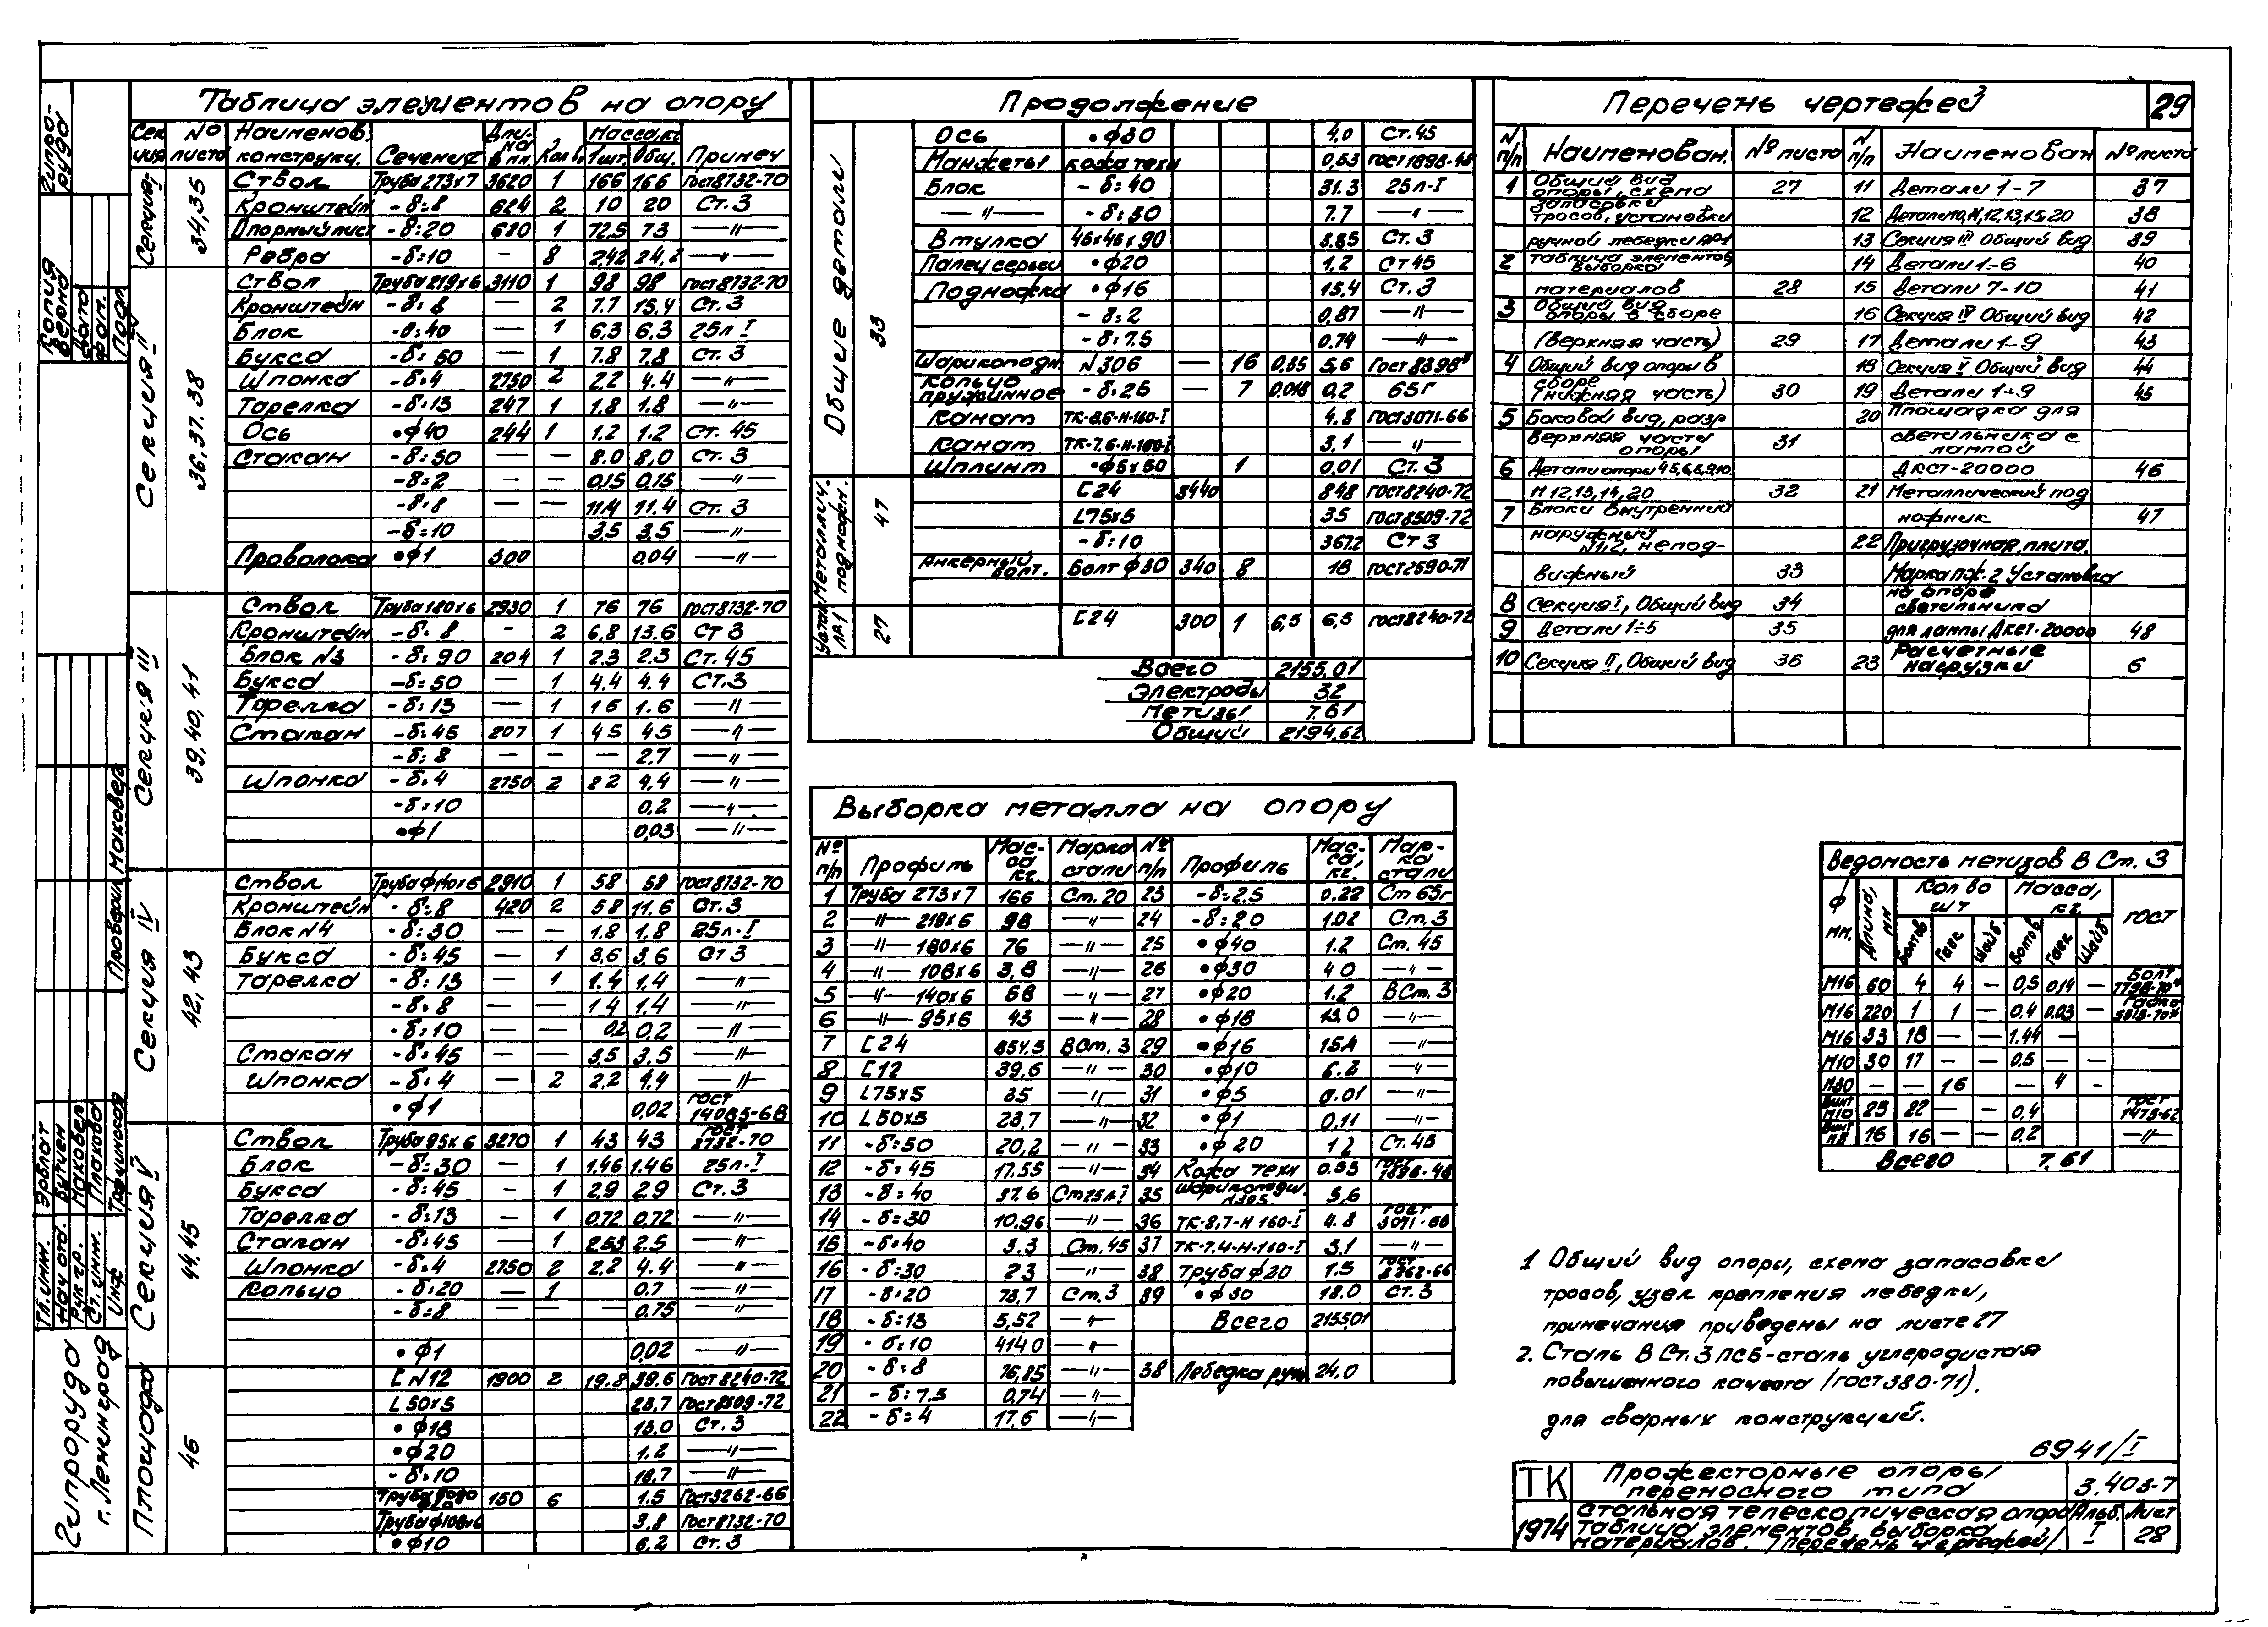 29
Таблица элементов на опору
Секция | № листа | Наименов. конструкц. | Сечения | Длина в мм. | Кол. | Масса, кг 1шт. | Общ. | Примеч
Секция I
34,35
Ствол Труба 273х7 3620 1 166 166 Гост8732-70
Кронштейн -δ:8 624 2 10 20 Ст.3
Опорный лист -δ:20 620 1 72,5 73 —〃—
Ребра -δ:10 — 8 2,42 24,2 —〃—
Секция II
36,37.38
Ствол Труба 219х6 3110 1 98 98 Гост8732-70
Кронштейн -δ:8 — 2 7.7 15,4 Ст.3
Блок -δ:40 — 1 6,3 6.3 25л.I
Букса -δ:50 — 1 7.8 7,8 Ст.3
Шпонка -δ.4 2750 2 2,2 4.4 —〃—
Тарелка -δ:13 247 1 1.8 1.8 —〃—
Ось •ф40 244 1 1.2 1.2 Ст.45
Стакан -δ:50 — — 8.0 8,0 Ст.3
-δ:2 — — 0,15 0,15 —〃—
-δ.8 — — 11,4 11.4 Ст.3
-δ:10 3,5 3,5 —〃—
Проволока •ф1 300 0,04 —〃—
Секция III
39,40,41
Ствол Труба180х6 2930 1 76 76 Гост8732-70
Кронштейн -δ.8 - 2 6,8 13.6 Ст3
Блок №3 -δ:90 204 1 2.3 2.3 Ст.45
Букса -δ:50 — 1 4.4 4.4 Ст.3
Тарелка -δ:13 — 1 16 1.6 —〃—
Стакан -δ:45 207 1 45 45 —〃—
-δ:8 — — — 2.7 —〃—
Шпонка -δ.4 2750 2 22 4,4 —〃—
-δ:10 0,2 —〃—
•ф1 0,03 —〃—
Секция IV
42,43
Ствол Трубаф140х6 2910 1 58 58 Гост8732-70
Кронштейн -δ:8 420 2 58 11.6 Ст.3
Блок№4 -δ:30 — — 1.8 1,8 25л.I
Букса -δ:45 — 1 3,6 3,6 Ст3
Тарелка -δ:13 — 1 1.4 1,4 —〃—
-δ.8 — — 14 1,4 —〃—
-δ:10 — — 0,2 0,2 —〃—
Стакан -δ:45 — — 3,5 3.5 —〃—
Шпонка -δ.4 — 2 2,2 4,4 —〃—
•ф1 0,02 ГОСТ 14085-68
Секция V
44,45
Ствол Труба95х6 3270 1 43 43 ГОСТ 8732-70
Блок -δ:30 — 1 1.46 1.46 25л.I
Букса -δ:45 — 1 2,9 2,9 Ст.3
Тарелка -δ:13 — 1 0,72 0,72 —〃—
Стакан -δ:45 — 1 2.53 2.5 —〃—
Шпонка -δ.4 2750 2 2.2 4.4 —〃—
Кольцо -δ:20 — 1 0.7 —〃—
-δ:8 — — — 0.75 —〃—
•ф1 0,02 —〃—
Площадка
46
[ №12 1900 2 19.8 39.6 Гост8240-72
L 50х5 23,7 Гост8509-72
•ф18 13,0 Ст.3
•ф20 1.2 —〃—
-δ.10 18,7 —〃—
Труба водо ф20 150 6 1.5 Гост3262-66
Трубаф108х6 3.8 Гост8732-70
•ф10 6,2 Ст.3
Продолжение
Общие детали
33
Ось •ф30 4,0 Ст.45
Манжеты кожа техн 0,53 гост1898-48
Блок -δ:40 31.3 25л-I
—〃— -δ:30 7.7 —〃—
Втулка 45х45х90 3.85 Ст.3
Палец серьги •ф20 1.2 Ст45
Подножка •ф16 15,4 Ст.3
-δ:2 0,87 —〃—
-δ:7.5 0,74 —〃—
Шарикоподш. №306 — 16 0,85 5,6 Гост8396
Кольцо пружинное -δ:25 — 7 0,018 0,2 65г
Канат ТК-8,6-Н-160-I 4.8 ГОСТ3071-66
Канат ТК-7.6-Н-160-I 3,1 —〃—
Шплинт •ф5х50 1 0,01 Ст.3
Металлич. подножн.
47
[24 3440 848 гост8240-72
L75х5 35 ГОСТ8509-72
-δ:10 367.2 Ст3
Анкерный болт. Болт ф30 340 8 18 гост2590-71
Устан ЛР1
27
[24 300 1 6,5 6,5 гост8240-72
Всего 2155,01
Электроды 32
Метизы 7.61
Общий 2194,62
Перечень чертежей
№ п/п Наименован. № листа № п/п Наименован № листа
1 Общий вид опоры, схема запасовки тросов, установки ручной лебедки ЛР1 27
2 Таблица элементов, выборка материалов 28
3 Общий вид опоры в сборе (верхняя часть) 29
4 Общий вид опоры в сборе (нижняя часть) 30
5 Боковой вид, разр верхняя часть опоры 31
6 Детали опоры 4,5,6,8,9,10. 11 12,13,14,20 32
7 Блоки внутренний наружный №1,2, неподвижный 33
8 Секция I, Общий вид 34
9 Детали 1÷5 35
10 Секция II, Общий вид 36
11 Детали 1-7 37
12 Детали10,11,12,13,15,20 38
13 Секция III Общий вид 39
14 Детали 1-6 40
15 Детали 7-10 41
16 Секция IV Общий вид 42
17 Детали 1-9 43
18 Секция V Общий вид 44
19 Детали 1÷9 45
20 Площадка для светильника с лампой ДКСТ-20000 46
21 Металлический подножник 47
22 Пригрузочная, плита. Марка ПЖ.2 Установка на опоре светильника для лампы Дкст-20000 48
23 Расчетные нагрузки 6
Выборка металла на опору
№ п/п Профиль Масса кг. Марка стали № п/п Профиль Масса, кг. Марка стали
1 Труба 273х7 166 Ст.20 23 -δ:2,5 0.22 Ст 65г
2 —〃— 219х6 98 —〃— 24 -δ:20 1.02 Ст.3
3 —〃— 180х6 76 —〃— 25 •ф40 1.2 Ст.45
4 —〃— 108х6 3,8 —〃— 26 •ф30 40 —〃—
5 —〃— 140х6 58 —〃— 27 •ф20 1.2 ВСт.3
6 —〃— 95х6 43 —〃— 28 •ф18 13.0 —〃—
7 [24 854,5 ВСт.3 29 •ф16 15,4 —〃—
8 [12 39,6 —〃— 30 •ф10 6.2 —〃—
9 L75х5 35 —〃— 31 •ф5 0.01 —〃—
10 L50х5 23,7 —〃— 32 •ф1 0,11 —〃—
11 -δ:50 20,2 —〃— 33 •ф20 12 Ст.45
12 -δ:45 17.55 —〃— 34 Кожа техн 0.53 ГОСТ 1898-48
13 -δ:40 37.6 Ст25л.I 35 шарикоподш. 5,6
14 -δ:30 10.96 —〃— 36 ТК-8,7-Н 160-I 4.8 ГОСТ 3071-66
15 -δ:40 3.3 Ст.45 37 ТК-7.4-Н-160-I 3,1 —〃—
16 -δ:30 23 —〃— 38 Труба ф20 1.5 ГОСТ 3262-66
17 -δ:20 73,7 Ст.3 39 •ф30 18.0 Ст.3
18 -δ:13 5,52 —〃— Всего 2155,01
19 -δ:10 414 0 —〃—
20 -δ:8 76,85 —〃— 38 Лебедка ручн 24,0
21 -δ:7,5 0,74 —〃—
22 -δ=4 17,6 —〃—
Ведомость метизов В Ст.3
Ф мм. Длина, мм Кол во шт Масса, кг ГОСТ
Болтов Гаек Шайб. Болтов Гаек Шайб.
М16 60 4 4 — 0,5 0,14 — Болт 7798-70*
М16 220 1 1 — 0,4 0.03 — Гайка 5915-70*
М16 33 18 — 1.44 —
М10 30 17 - — 0,5 — —
М30 — — 16 — 4 -
Винт М10 25 22 — - 0,4 ГОСТ 1473-62
Винт М8 16 16 — — 0,2 —〃—
Всего 7.61
1 Общий вид опоры, схема запасовки
тросов, узел крепления лебедки,
примечания приведены на листе 27
2. Сталь В Ст.3 ПС5-сталь углеродистая
повышенного качества (гост 380-71).
для сварных конструкций.
6941/I
ТК Прожекторные опоры переносного типа 3.403-7
1974 Стальная телескопическая опора Таблица элементов, выборка материалов. /Перечень чертежей/. Альб. I Лист 28
Гипроруда
Копия верна
Дата
Фам.
Подп
Гл.инж. Эрблат
Нач отд. Бутчен
Рук гр. Маковер
Ст.инж. Плахова
Инж
Проверил Маковер
Гипроруда
г. Ленинград